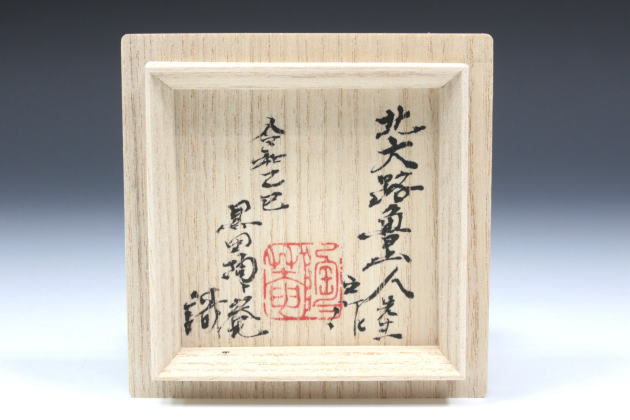 北大路魯山人先生
令和乙巳
黒田陶々菴
識